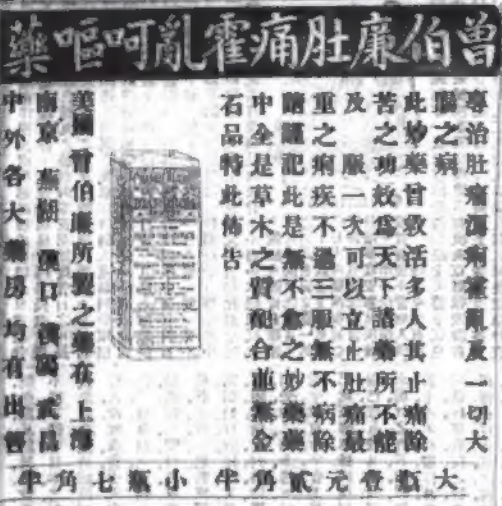 曾伯廉肚痛霍亂呵嘔藥
專治肚痛瀉痢霍亂及一切大
腸之病
此妙藥甘救活多人其止痛除
苦之功效爲天下諸藥所不能
及 服一次可以立止肚痛最
重之痢疾不過三服無不病除
請謹記此是無不愈之妙藥藥
中全是草木之質配合並無金
石品特此佈告
美國曾伯廉所製之藥在上海
南京 蕪湖 漢口 漢陽 武昌
中外各大藥房均有出售
大瓶壹元貳角半 小瓶七角半